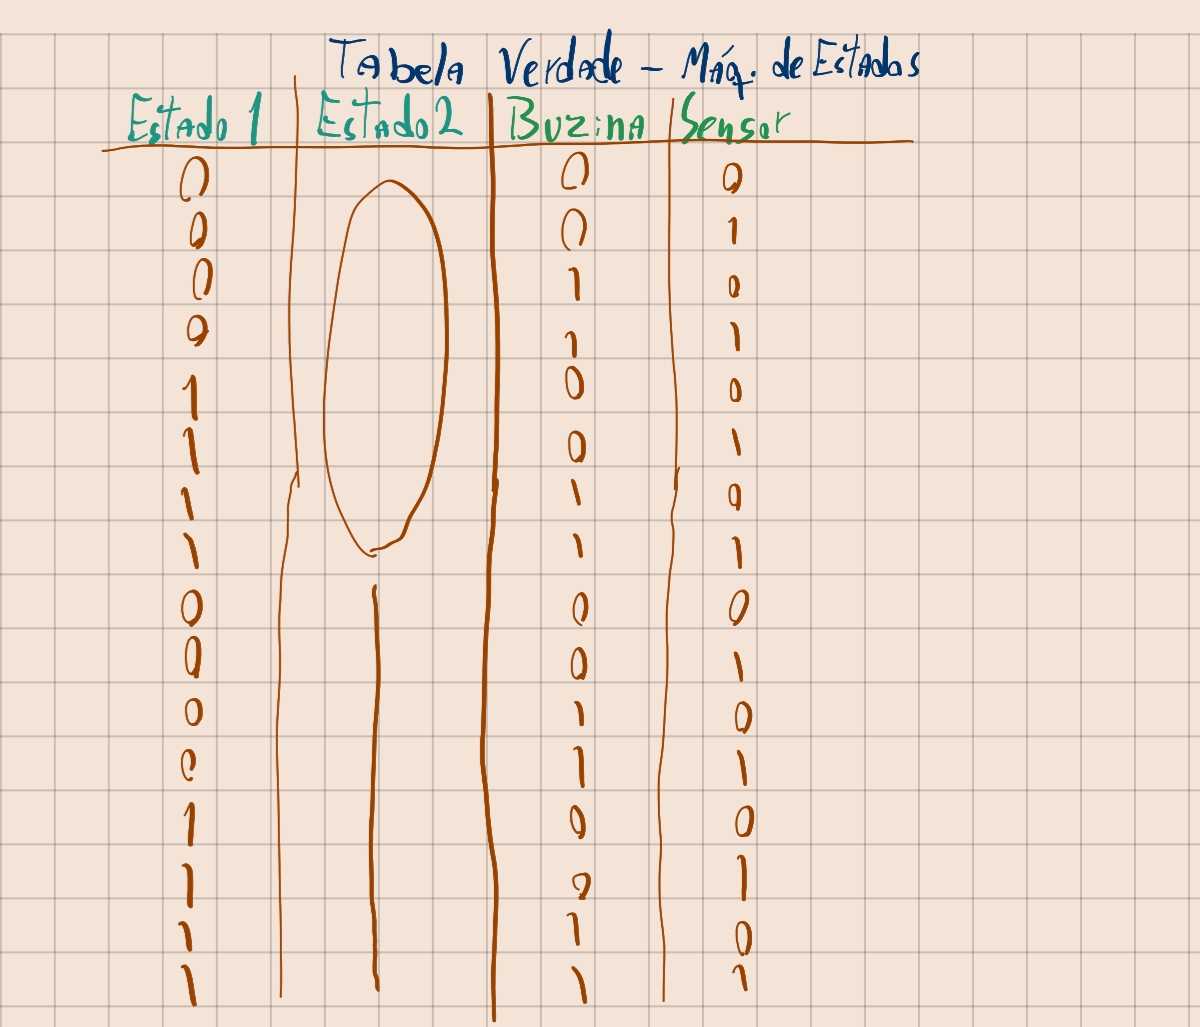 Tabela Verdade - Máq. de Estados
Estado 1 Estado 2 Buzina Sensor
0 0 0 0
0 0 1
0 1 0
0 1 1
1 0 0
1 0 1
1 1 0
1 1 1
0 1 0 0
0 0 1
0 1 0
0 1 1
1 0 0
1 0 1
1 1 0
1 1 1